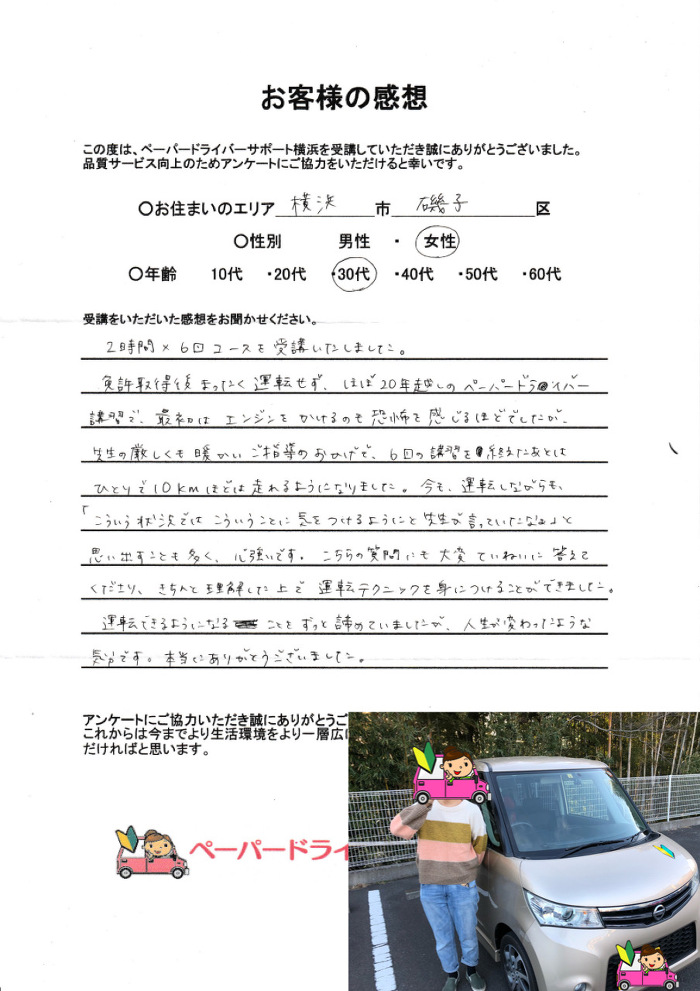 お客様の感想
この度は、ペーパードライバーサポート横浜を受講していただき誠にありがとうございました。
品質サービス向上のためアンケートにご協力をいただけると幸いです。
〇お住まいのエリア 横浜 市 磯子 区
〇性別 男性 ・ 女性
〇年齢 10代 ・20代 ・30代 ・40代 ・50代 ・60代
受講をいただいた感想をお聞かせください。
2時間×6回コースを受講いたしました。
免許取得後まったく運転せず、ほぼ20年越しのペーパードライバー
講習で、最初はエンジンをかけるのも恐怖を感じるほどでしたが、
先生の厳しくも暖かいご指導のおかげで、6回の講習を終えたあとは
ひとりで10kmほどは走れるようになりました。今も、運転しながらも、
「こういう状況ではこういうことに気をつけるようにと先生が言っていたなぁ」と
思い出すことも多く、心強いです。こちらの質問にも大変ていねいに答えて
くださり、きちんと理解した上で運転テクニックを身につけることができました。
運転できるようになることをずっと諦めていましたが、人生が変わったような
気分です。本当にありがとうございました。
アンケートにご協力いただき誠にありがとうご
これからは今までより生活環境をより一層広
だければと思います。
ペーパードライ